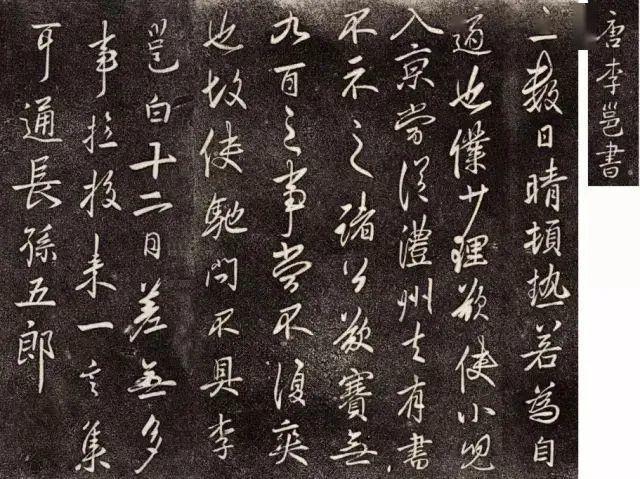 唐李邕書
三數日晴頓熱若為自
適也僕少理欲使小兒
入京嘗從澧州去有書
不示之諸公欲賽無
九百之事嘗不復奕
也故使馳問不具李
邕白十二日差無多
事拉投来一言集
耳通長孫五郎